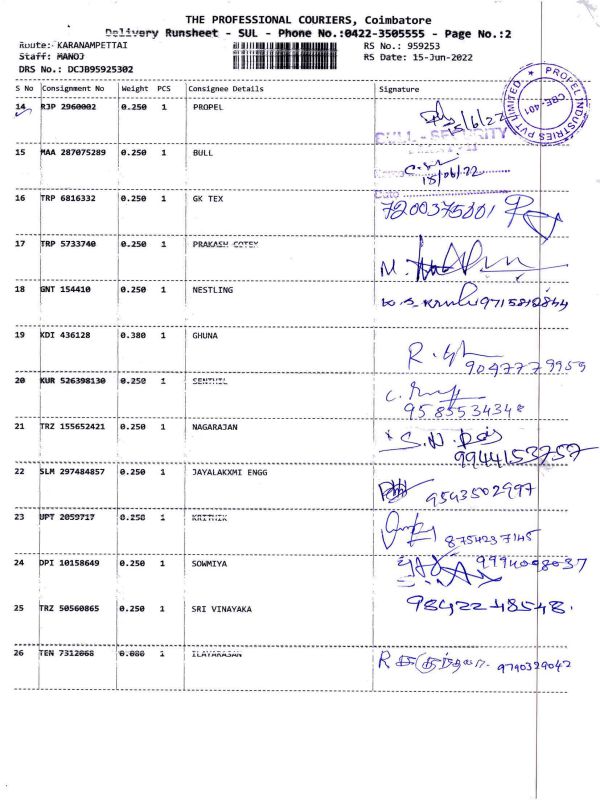 THE PROFESSIONAL COURIERS, Coimbatore
Delivery Runsheet - SUL - Phone No.:0422-3505555 - Page No.:2
Route: KARANAMPETTAI RS No.: 959253
Staff: MANOJ RS Date: 15-Jun-2022
DRS No.: DCJB95925302
S No Consignment No Weight PCS Consignee Details Signature
14 RJP 2960002 0.250 1 PROPEL 15/6/22
PROPEL INDUSTRIES PVT LIMITED CBE-401
BULL - SECURITY
15 MAA 287075289 0.250 1 BULL
18/06/22
Date
16 TRP 6816332 0.250 1 GK TEX 7200375001
17 TRP 5733740 0.250 1 PRAKASH COTEX M.
18 GNT 154410 0.250 1 NESTLING 9715812844
19 KDI 436128 0.380 1 GHUNA R. 9047779959
20 KUR 526398130 0.250 1 SENTHIL C. 9585534348
21 TRZ 155652421 0.250 1 NAGARAJAN S.N. 9944153757
22 SLM 297484857 0.250 1 JAYALAKXMI ENGG 9543502997
23 UPT 2059717 0.250 1 KRITHIK 8754237145
24 DPI 10158649 0.250 1 SOWMIYA 9994098037
25 TRZ 50560865 0.250 1 SRI VINAYAKA 9842248548.
26 TEN 7312068 0.080 1 ILAYARASAN R 9790329042